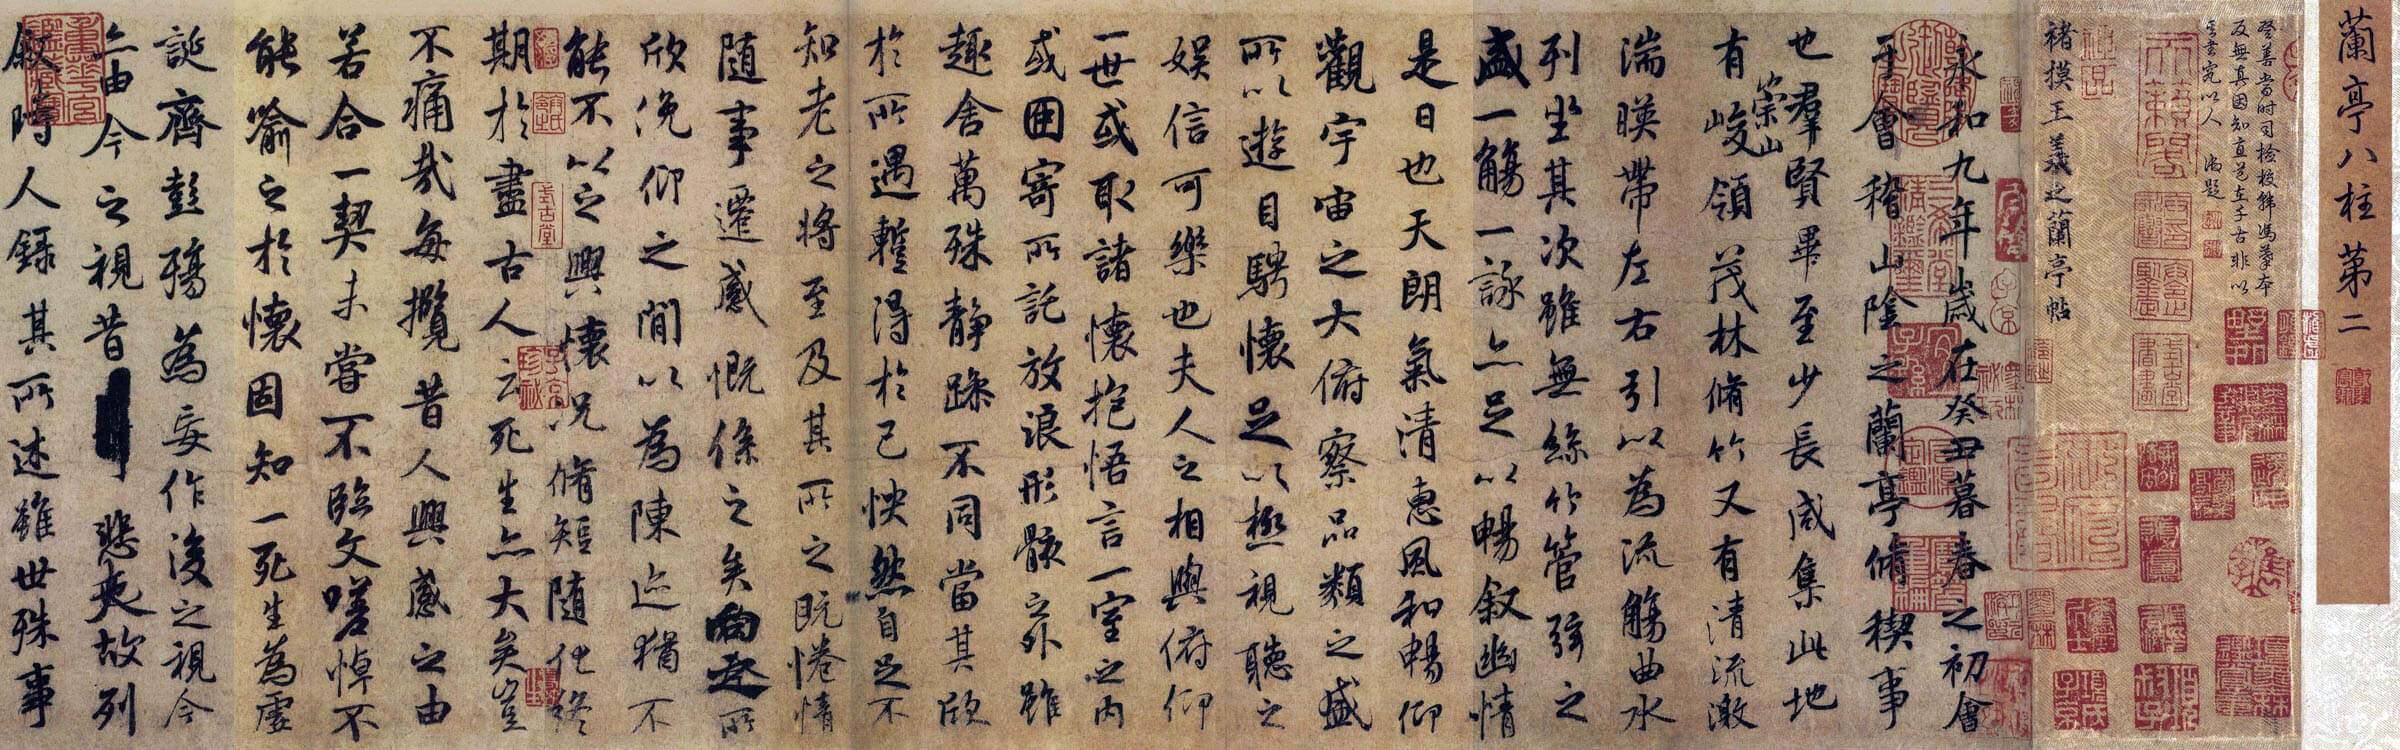 蘭亭八柱第二
褚摸王羲之蘭亭帖
永和九年歲在癸丑暮春之初會
于會稽山陰之蘭亭脩稧事
也羣賢畢至少長咸集此地
有崇山峻領茂林脩竹又有清流激
湍暎帶左右引以為流觴曲水
列坐其次雖無絲竹管弦之
盛一觴一詠亦足以暢叙幽情
是日也天朗氣清惠風和暢仰
觀宇宙之大俯察品類之盛
所以遊目騁懷足以極視聽之
娛信可樂也夫人之相與俯仰
一世或取諸懷抱悟言一室之內
或因寄所託放浪形骸之外雖
趣舍萬殊靜躁不同當其欣
於所遇蹔得於己怏然自足不
知老之將至及其所之既惓情
隨事遷感慨係之矣向之所
欣俛仰之間以為陳迹猶不
能不以之興懷況脩短隨化終
期於盡古人云死生亦大矣豈
不痛哉每攬昔人興感之由
若合一契未嘗不臨文嗟悼不
能喻之於懷固知一死生為虛
誕齊彭殤為妄作後之視今
亦由今之視昔悲夫故列
叙時人錄其所述雖世殊事